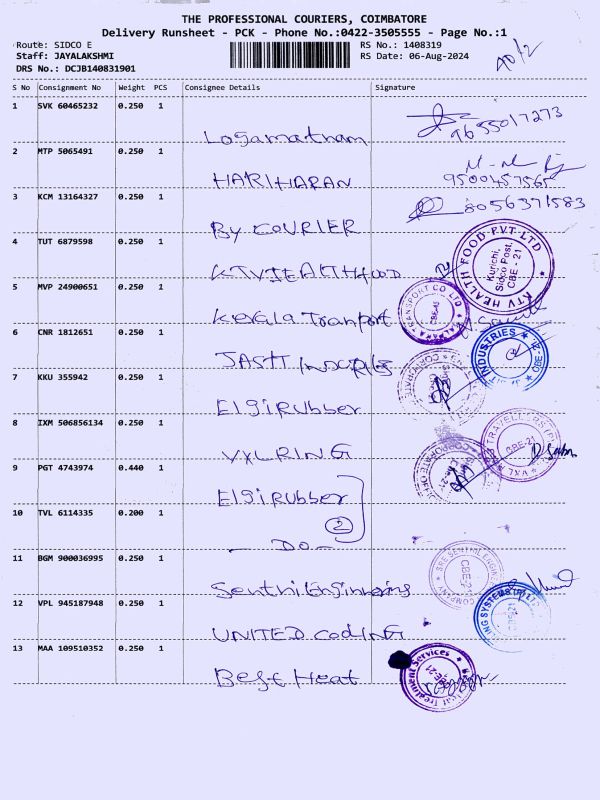 THE PROFESSIONAL COURIERS, COIMBATORE
Delivery Runsheet - PCK - Phone No.:0422-3505555 - Page No.:1
Route: SIDCO E RS No.: 1408319
Staff: JAYALAKSHMI RS Date: 06-Aug-2024
DRS No.: DCJB140831901
S No Consignment No Weight PCS Consignee Details Signature
1 SVK 60465232 0.250 1
Logamatham 9655017273
2 MTP 5065491 0.250 1
HARIHARAN 9500457565
3 KCM 13164327 0.250 1
By COURIER 8056371583
4 TUT 6879598 0.250 1
KTVHEALTHFOOD
KTV HEALTH FOOD PVT LTD
Kurichi,
Sidco Post,
CBE - 21
5 MVP 24900651 0.250 1
Kerala Tranport
TRANSPORT CO LTD
6 CNR 1812651 0.250 1
JASH
INDUSTRIES
7 KKU 355942 0.250 1
Elgi Rubber
8 IXM 506856134 0.250 1
VXLRING
TRAVELLERS
CBE-21
9 PGT 4743974 0.440 1
Elgi Rubber
2
10 TVL 6114335 0.200 1
DO
11 BGM 900036995 0.250 1
Senthi Engineering
SRE SENTHIL ENGINEERING COMPANY
CBE-21
12 VPL 945187948 0.250 1
UNITED CODING
13 MAA 109510352 0.250 1
Best Heat
Heat Treatment Services